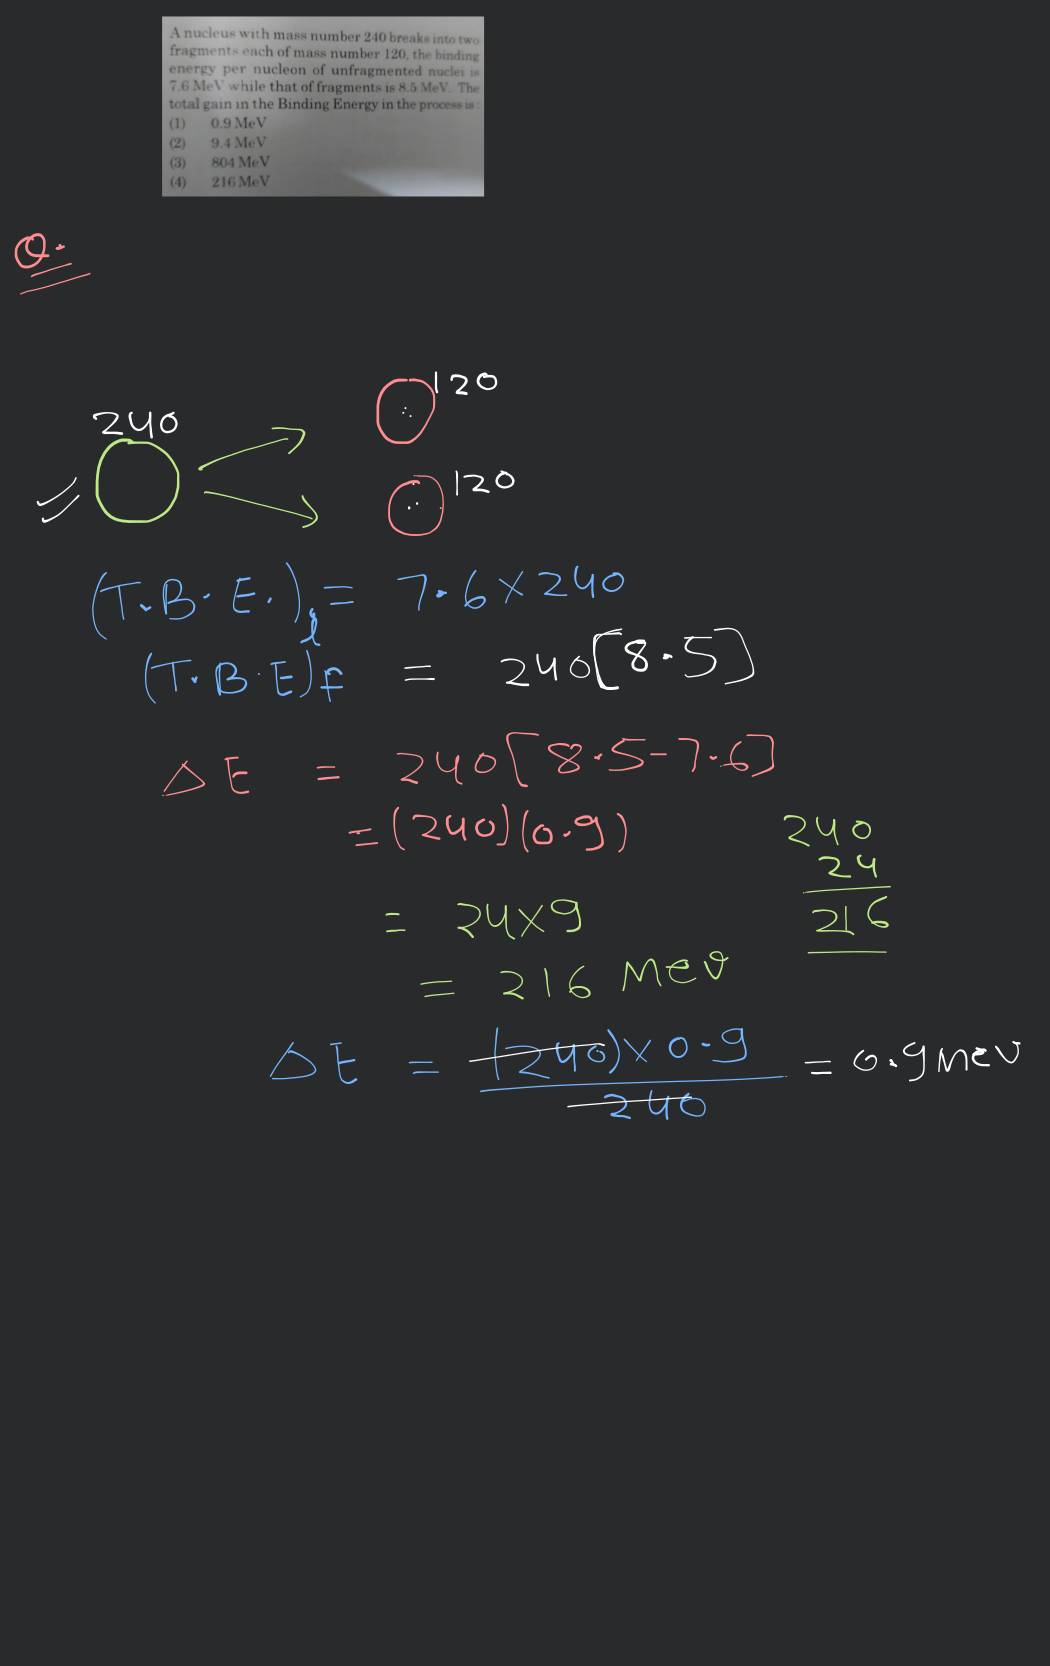 A nucleus with mass number 240 breaks into two
fragments each of mass number 120, the binding
energy per nucleon of unfragmented nuclei is
7.6 MeV while that of fragments is 8.5 MeV. The
total gain in the Binding Energy in the process is :
(1) 0.9 MeV
(2) 9.4 MeV
(3) 804 MeV
(4) 216 MeV
Q.
240
120
120
(T.B.E.)i = 7.6 × 240
(T.B.E)f = 240[8.5]
ΔE = 240[8.5-7.6]
= (240)(0.9)
240
24
216
= 24×9
= 216 Mev
ΔE = (240)×0.9 / 240 = 0.9 Mev